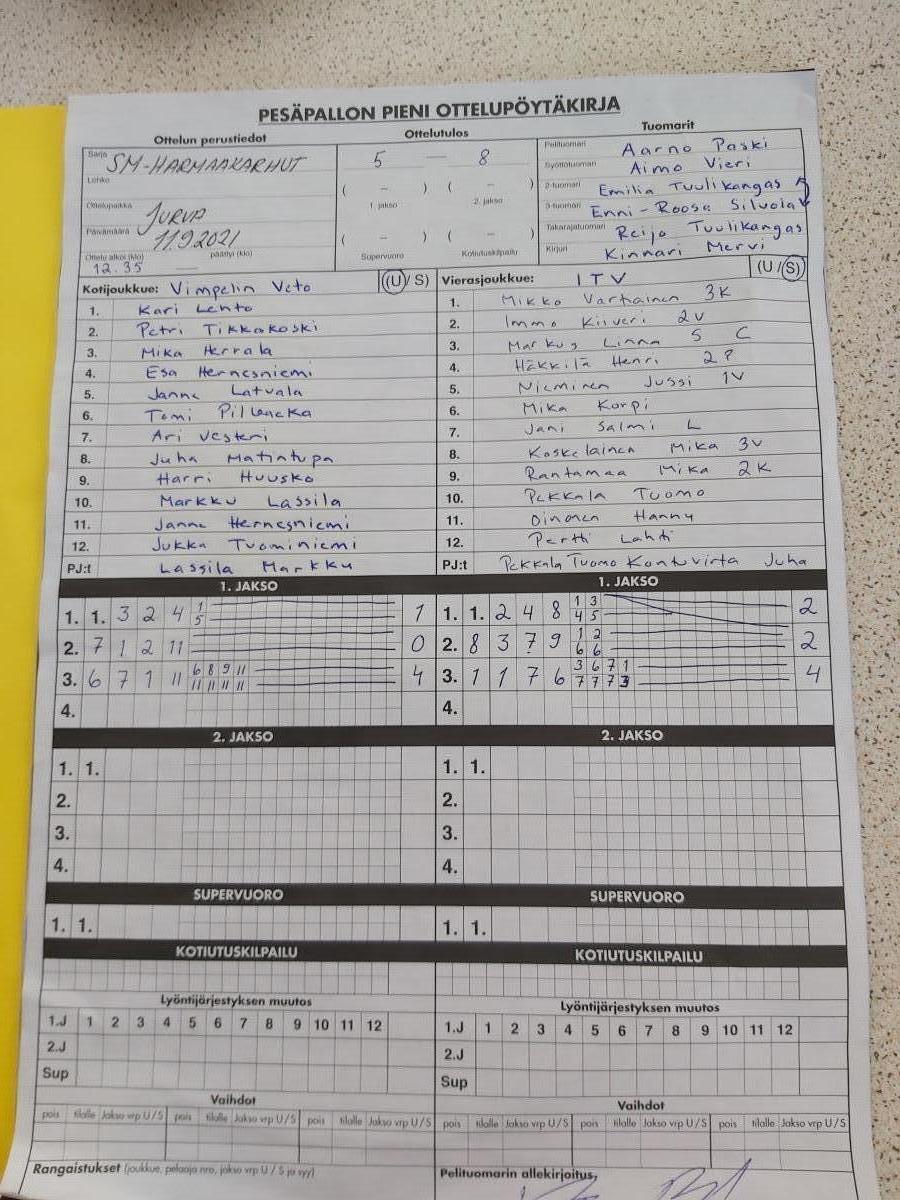 PESÄPALLON PIENI OTTELUPÖYTÄKIRJA
Ottelun perustiedot
Ottelutulos
Tuomarit
Sarja SM-HARMAAKARHUT
Lohko
Ottelupaikka JURVA
Päivämäärä 11.9.2021
Ottelu alkoi (klo) 12.35 päättyi (klo)
5 — 8
( – ) ( – )
1. jakso 2. jakso
( – ) ( – )
Supervuoro Kotiutuskilpailu
Pelituomari Aarno Paski
Syöttötuomari Aimo Vieri
2-tuomari Emilia Tuulikangas
3-tuomari Enni-Roosa Silvola
Takarajatuomari Reijo Tuulikangas
Kirjuri Kinnari Mervi
Kotijoukkue: Vimpelin Veto (U / S)
1. Kari Lehto
2. Petri Tikkakoski
3. Mika Herrala
4. Esa Hernesniemi
5. Janne Latvala
6. Tomi
7. Ari Vesteri
8. Juha Matintupa
9. Harri Huusko
10. Markku Lassila
11. Janne Hernesniemi
12. Jukka Tuominiemi
PJ:t Lassila Markku
Vierasjoukkue: ITV (U / S)
1. Mikko Varhainen 3K
2. Immo Kiiveri 2V
3. Markus Linna S C
4. Häkkilä Henri 2P
5. Nieminen Jussi 1V
6. Mika Korpi
7. Jani Salmi L
8. Koskelainen Mika 3V
9. Rantamaa Mika 2K
10. Pekkala Tuomo
11. Oinonen Hannu
12. Pertti Lahti
PJ:t Pekkala Tuomo Kontuvirta Juha
1. JAKSO
1. 1. 3 2 4 1 5 1
2. 7 1 2 11 0
3. 6 7 1 11 6 8 9 11 11 11 11 11 4
4.
1. JAKSO
1. 1. 2 4 8 1 3 4 5 2
2. 8 3 7 9 1 2 6 6 2
3. 1 1 7 6 3 6 7 1 7 7 7 3 4
4.
2. JAKSO
1. 1.
2.
3.
4.
2. JAKSO
1. 1.
2.
3.
4.
SUPERVUORO
1. 1.
SUPERVUORO
1. 1.
KOTIUTUSKILPAILU
KOTIUTUSKILPAILU
Lyöntijärjestyksen muutos
1.J 1 2 3 4 5 6 7 8 9 10 11 12
2.J
Sup
Lyöntijärjestyksen muutos
1.J 1 2 3 4 5 6 7 8 9 10 11 12
2.J
Sup
Vaihdot
pois tilalle Jakso vrp U / S pois tilalle Jakso vrp U / S pois tilalle Jakso vrp U / S
Vaihdot
pois tilalle Jakso vrp U / S pois tilalle Jakso vrp U / S pois tilalle Jakso vrp U / S
Rangaistukset (joukkue, pelaaja nro, jakso vrp U / S ja syy)
Pelituomarin allekirjoitus,